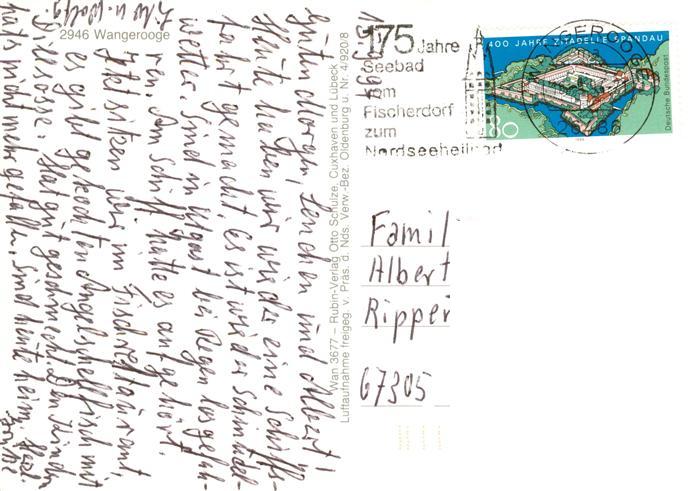 2946 Wangerooge
175 Jahre
Seebad
vom
Fischerdorf
zum
Nordseeheilbad
WANGEROOGE
400 JAHRE ZITADELLE SPANDAU
80
Deutsche Bundespost
Wan 3677 – Rubin-Verlag Otto Schulze, Cuxhaven und Lübeck
Luftaufnahme freigeg. v. Präs. d. Nds. Verw.-Bez. Oldenburg u. Nr. 4/920/8
Guten Morgen, Lenchen und Albert!
Heute haben wir wieder eine Schiffs-
fahrt gemacht, es ist wieder Schmuddel-
wetter. Sind in bei Regen losgefah-
ren. Am Schiff hatte es aufgehört.
Jetzt sitzen wir im Fischrestaurant,
es gibt gekochten Angelschellfisch mit
Dillsoße. Hat gut geschmeckt. Den Kindern
hat's nicht mehr gefallen, sind heute heim.
Famil
Albert
Ripper
67305